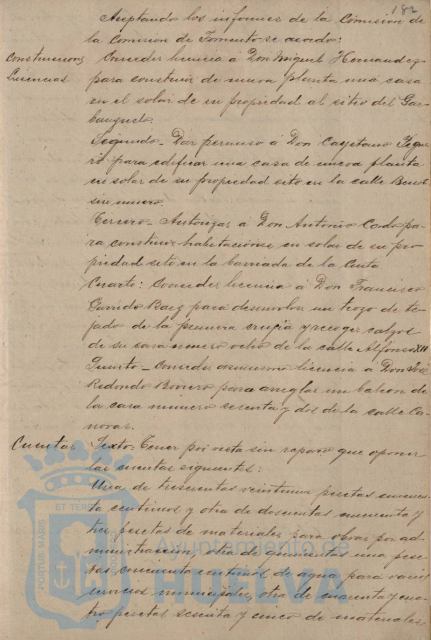 182
Aceptando los informes de la Comisión de
la Comisión de Fomento se acordó:
Construcciones
Licencias
Conceder licencia á Don Miguel Hernandez
para construir de nueva planta una casa
en el solar de su propiedad al sitio del Gar-
banzuelo.
Segundo- Dar permiso á Don Cayetano
para edificar una casa de nueva planta
en solar de su propiedad sito en la calle
sin número.
Tercero- Autorizar á Don Antonio Cordo pa-
ra construir habitaciones en solar de su pro-
piedad sito en la barriada de la Cinta
Cuarto: Conceder licencia á Don Francisco
Garrido Baez para desmontar un trozo de te-
jado de la primera crugia y recoger calzos
de su casa número ocho de la calle Alfonso XII
Quinto- conceder asimismo licencia á Don José
Redondo para arreglar un balcon de
la casa número sesenta y dos de la calle Ca-
novas.
Cuentas
Sexto: Tener por vista sin reparo que oponer
las cuentas siguientes:
Una de trescientas veintinueve pesetas cincuen-
ta centimos y otra de doscientas cincuenta y
tres pesetas de materiales para obras por ad-
ministracion, otra de quinientas una pese-
tas cincuenta centimos de agua para varios
servicios municipales, otra de cuarenta y cua-
tro pesetas sesenta y cinco de materiales,
PORTUS MARIS ET TERRAE
Ayuntamiento de
HUELVA